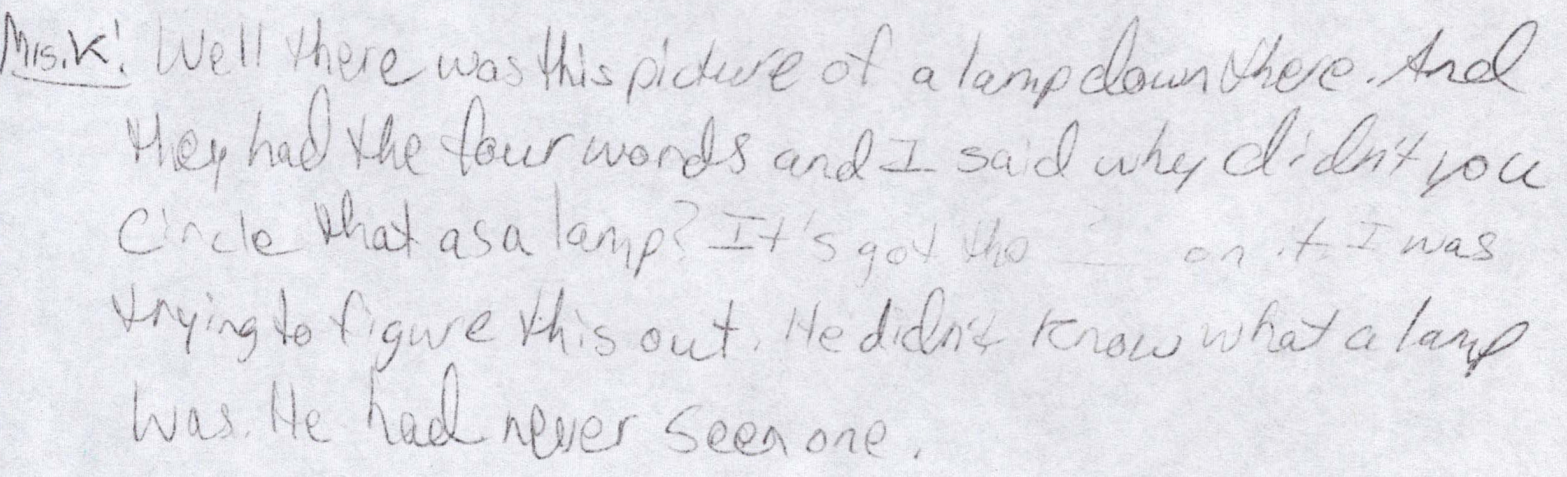 Mrs.K: Well there was this picture of a lamp down there. And
they had the four words and I said why didn't you
Circle that as a lamp? It's got the __?__ on it. I was
trying to figure this out. He didn't know what a lamp
was. He had never seen one.